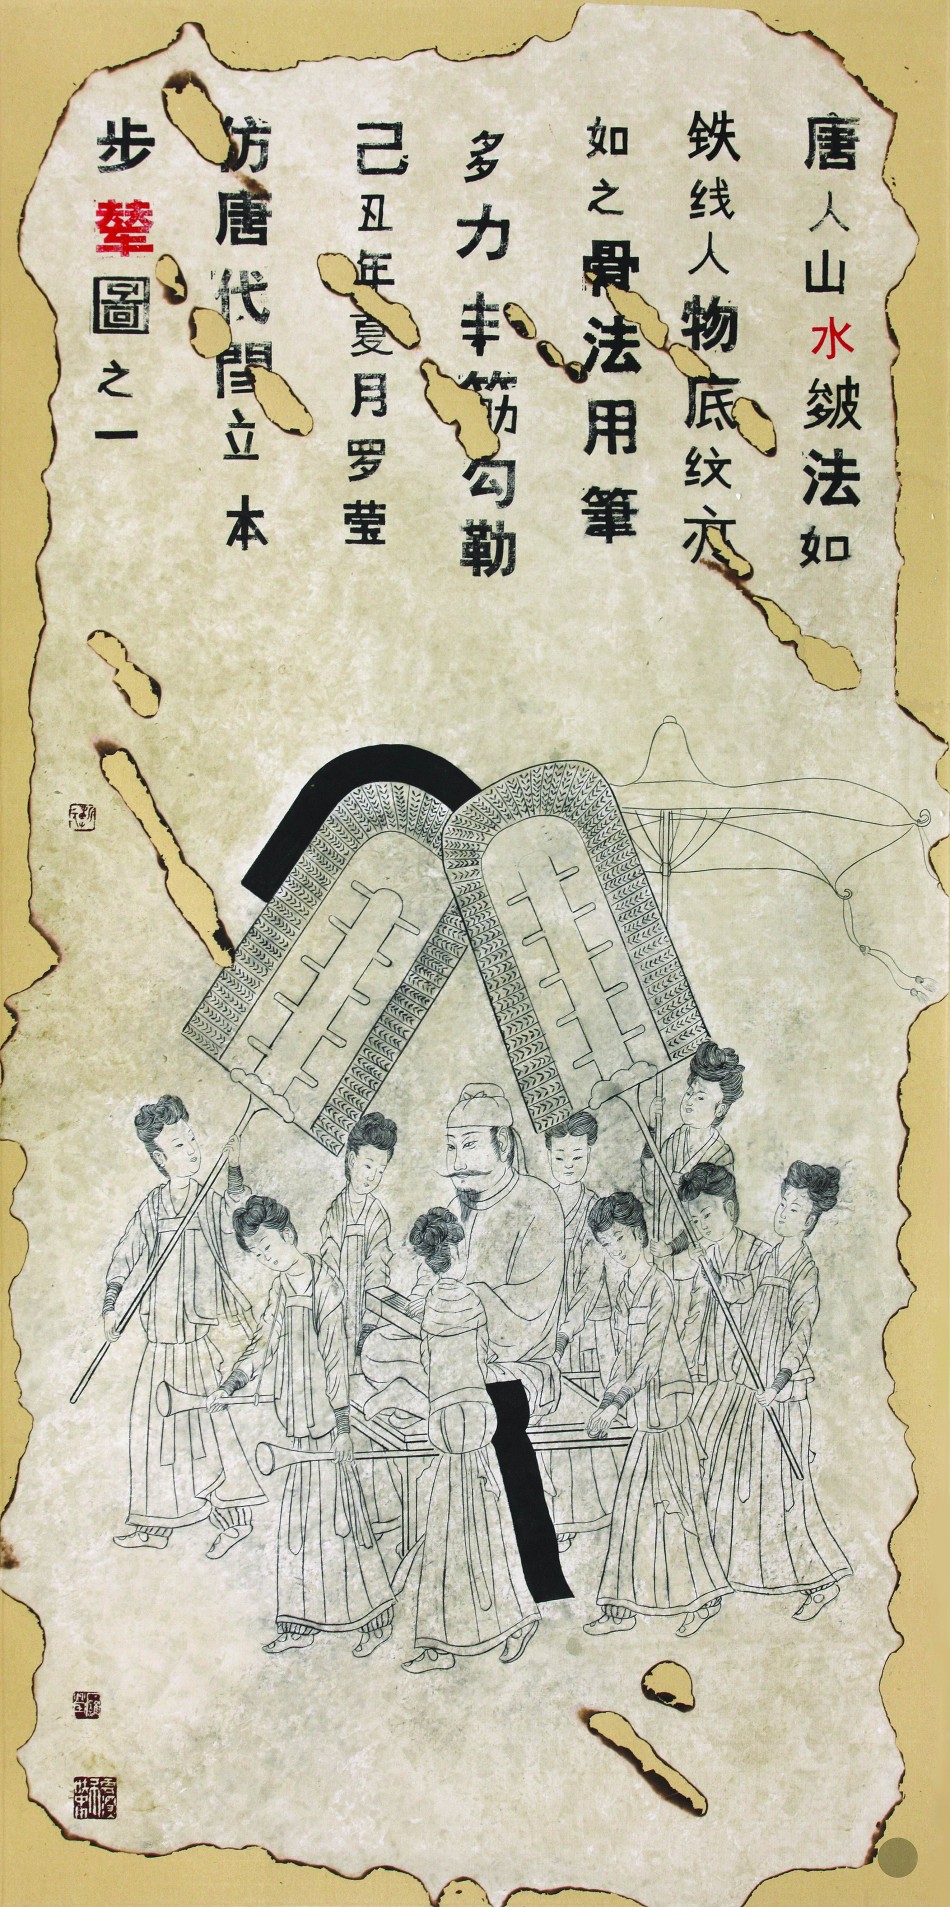 唐人山水皴法如
铁线人物底纹亦
如之骨法用筆
多力丰筋勾勒
己丑年夏月罗莹
仿唐代閆立本
步輦圖之一